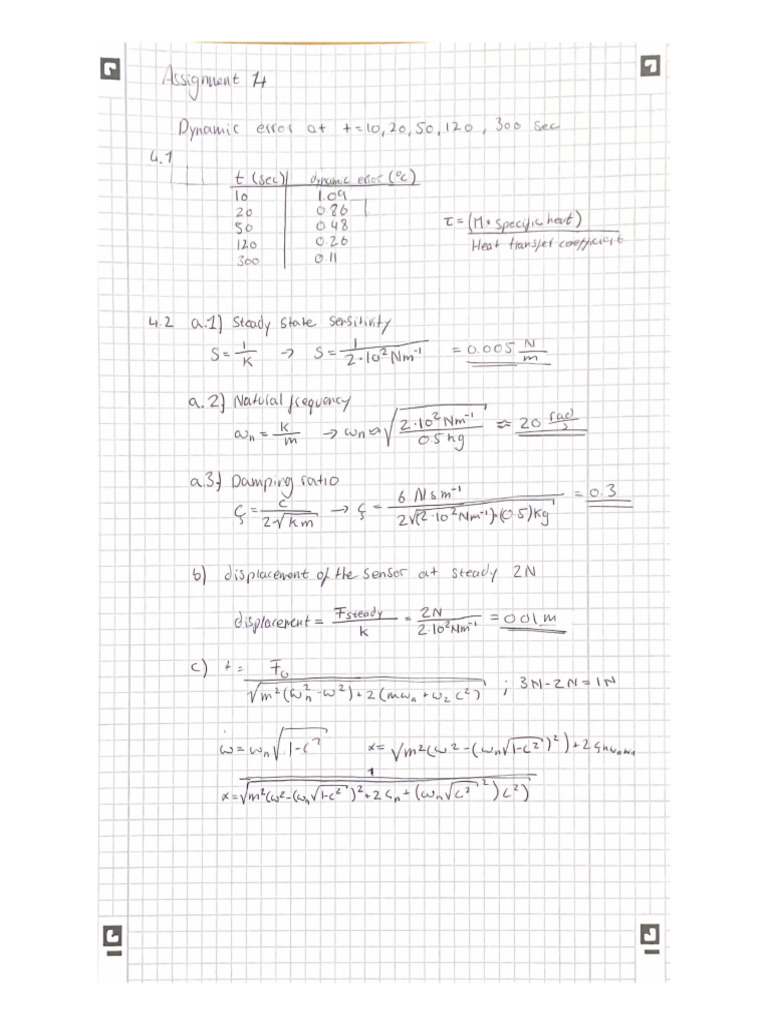 Assignment 4
Dynamic error at t=10,20,50,120, 300 sec
4.1
t (sec) | dynamic error (°c)
10 | 1.09
20 | 0.86
50 | 0.48
120 | 0.26
300 | 0.11
τ = (M · specific heat) / Heat transfer coefficient
4.2 a.1) Steady state sensitivity
S = 1/K → S = 1/(2·10² Nm⁻¹) = 0.005 N/m
a.2) Natural frequency
ωn = k/m → ωn = √(2·10² Nm⁻¹ / 0.5 kg) ≈ 20 rad/s
a.3) Damping ratio
ς = c/(2√km) → ς = 6 N s.m⁻¹ / (2√(2·10² Nm⁻¹)·(0.5)kg) = 0.3
b) displacement of the sensor at steady 2N
displacement = Fsteady/k = 2N/(2·10² Nm⁻¹) = 0.01 m
c) F₀ / √(m²(ωn²-ω²)+2(mωn+ω₂c²) ; 3N-2N=1N
ω = ωn√(1-c²) x = √m²(ω²-(ωn√(1-c²)²)
x = 1 / √m²(ω²-(ωn√(1-c²)²